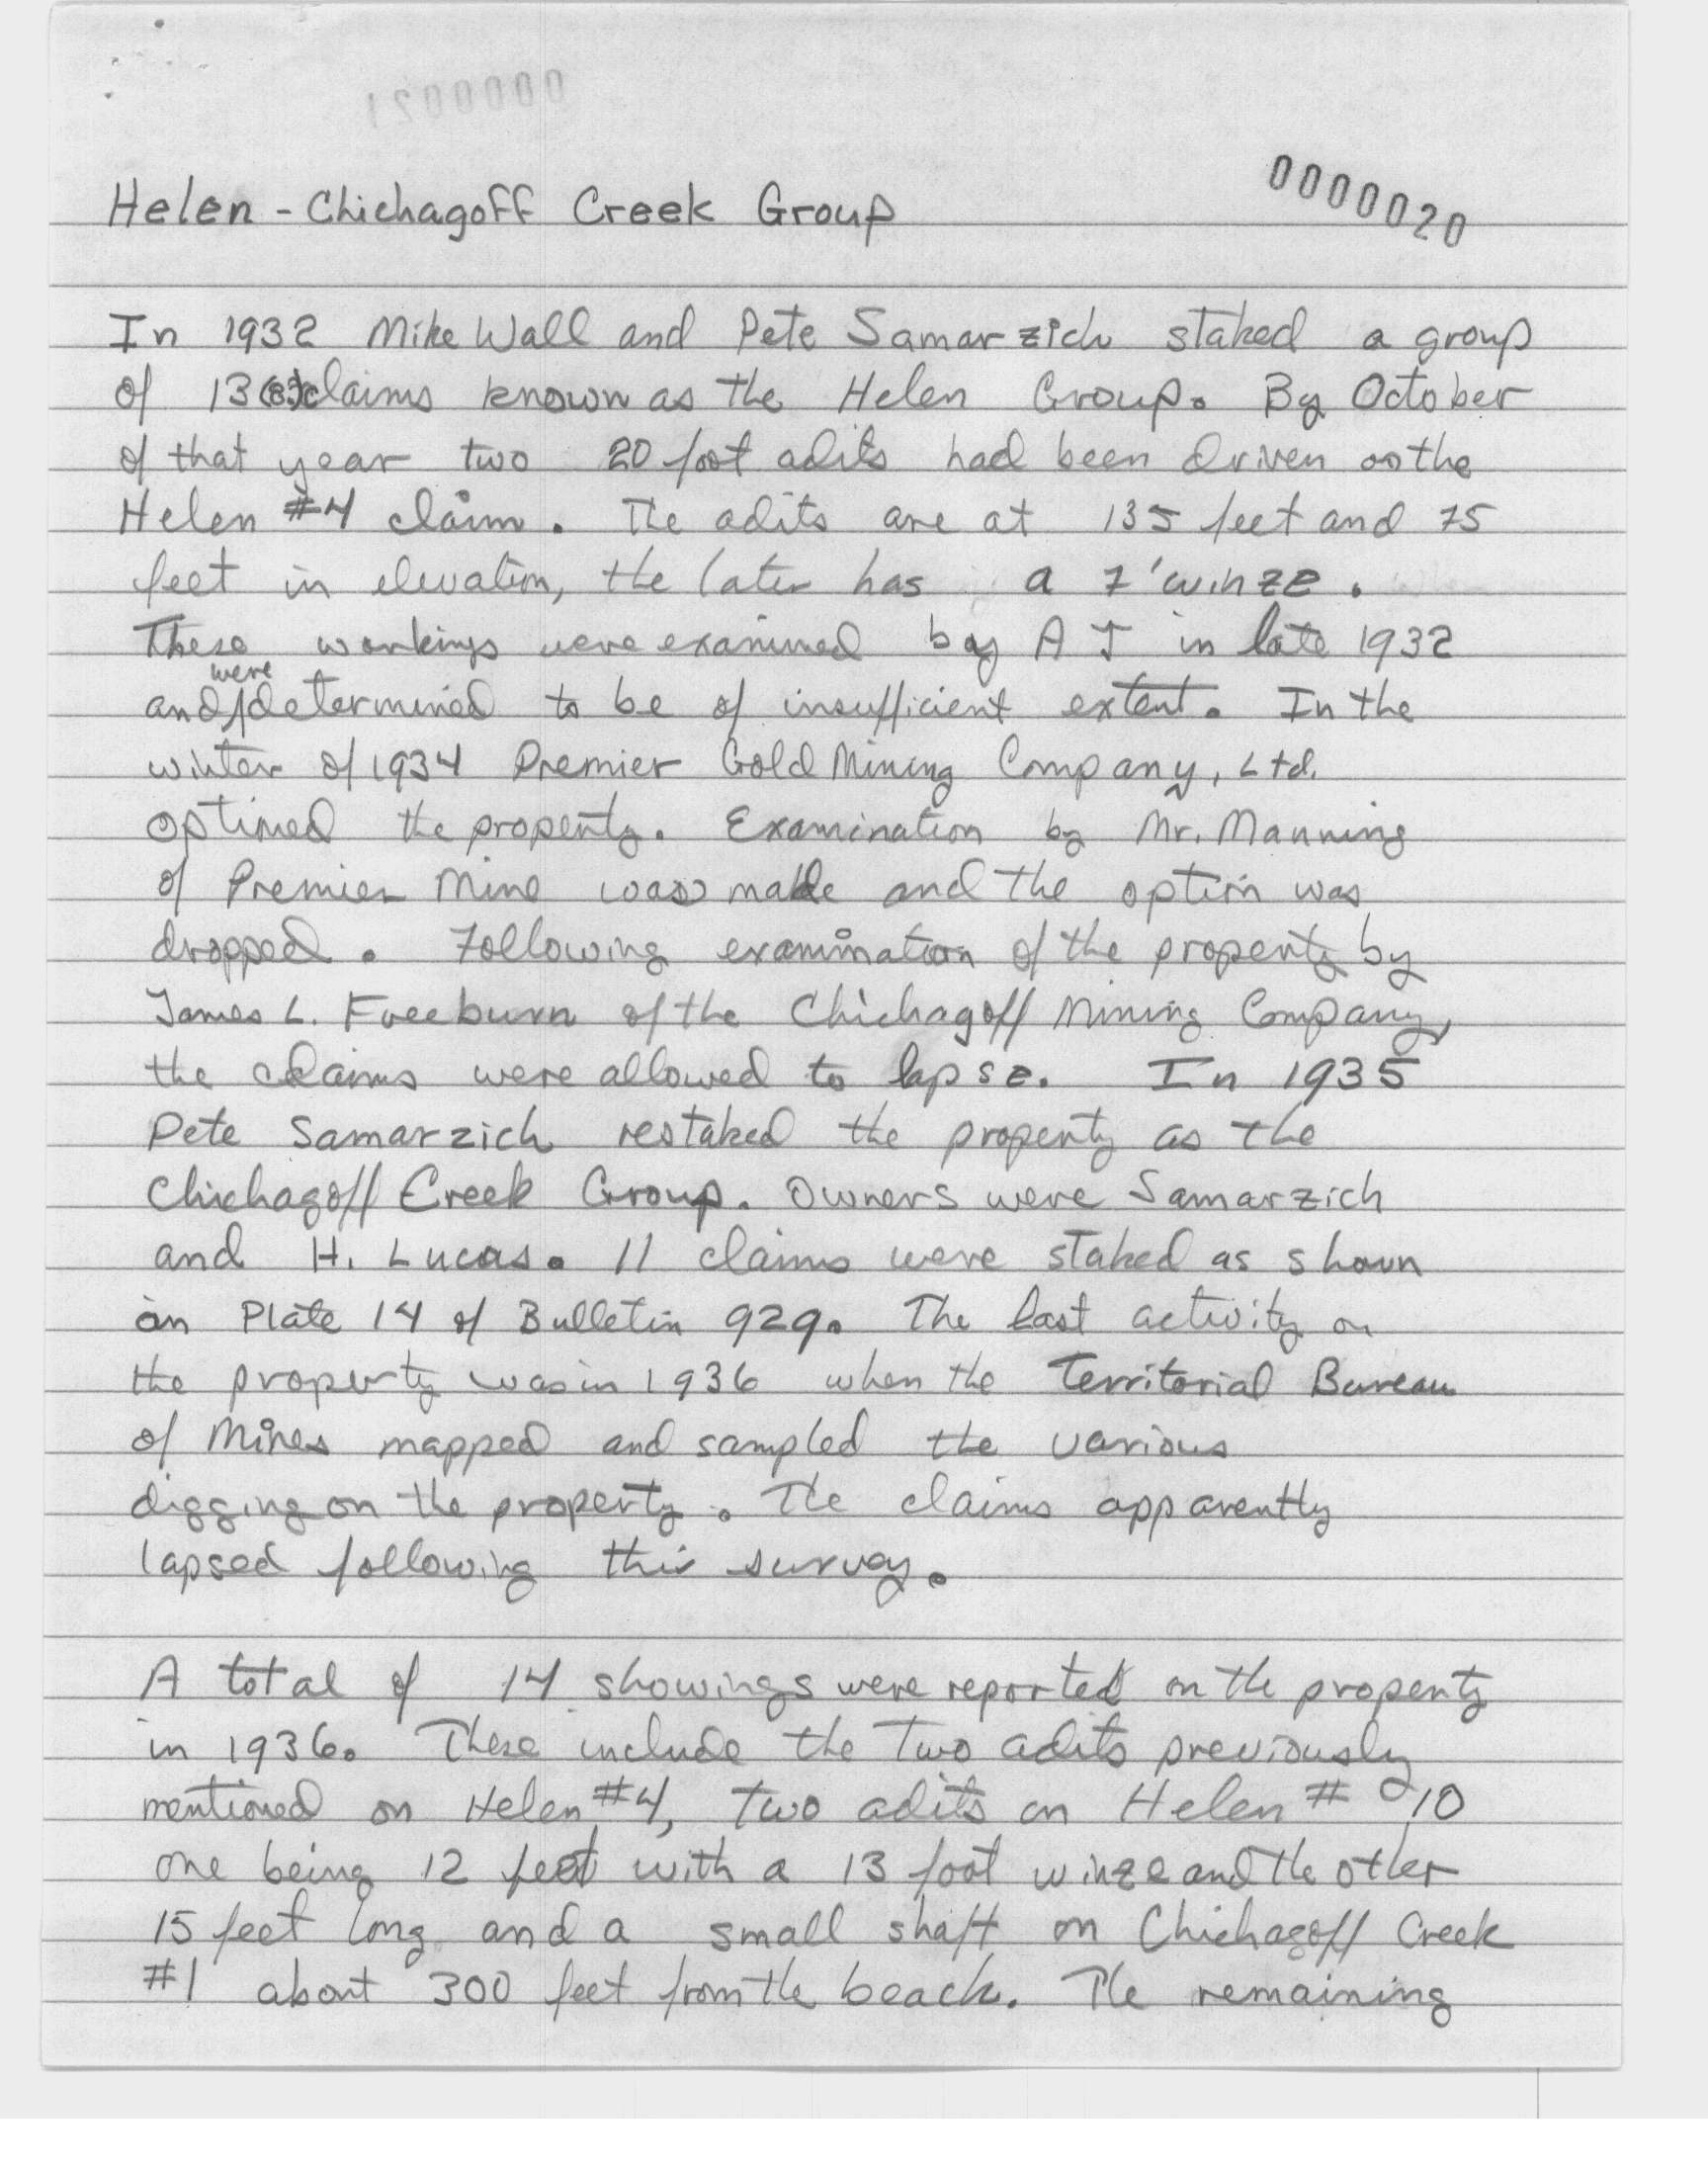 0000021
0000020
Helen - Chichagoff Creek Group
In 1932 Mike Wall and Pete Samarzich staked a group
of 13 (8?) claims known as the Helen Group. By October
of that year two 20 foot adits had been driven on the
Helen #4 claim. The adits are at 135 feet and 75
feet in elevation, the later has a 7' winze.
These workings were examined by A J in late 1932
and were determined to be of insufficient extent. In the
winter of 1934 Premier Gold Mining Company, Ltd.
optioned the property. Examination by Mr. Manning
of Premier Mine was made and the option was
dropped. Following examination of the property by
James L. Freeburn of the Chichagoff Mining Company,
the claims were allowed to lapse. In 1935
Pete Samarzich restaked the property as the
Chichagoff Creek Group. Owners were Samarzich
and H. Lucas. 11 claims were staked as shown
on Plate 14 of Bulletin 929. The last activity on
the property was in 1936 when the Territorial Bureau
of Mines mapped and sampled the various
digging on the property. The claims apparently
lapsed following this survey.
A total of 14 showings were reported on the property
in 1936. These include the two adits previously
mentioned on Helen #4, two adits on Helen # 10
one being 12 feet with a 13 foot winze and the other
15 feet long and a small shaft on Chichagoff Creek
#1 about 300 feet from the beach. The remaining